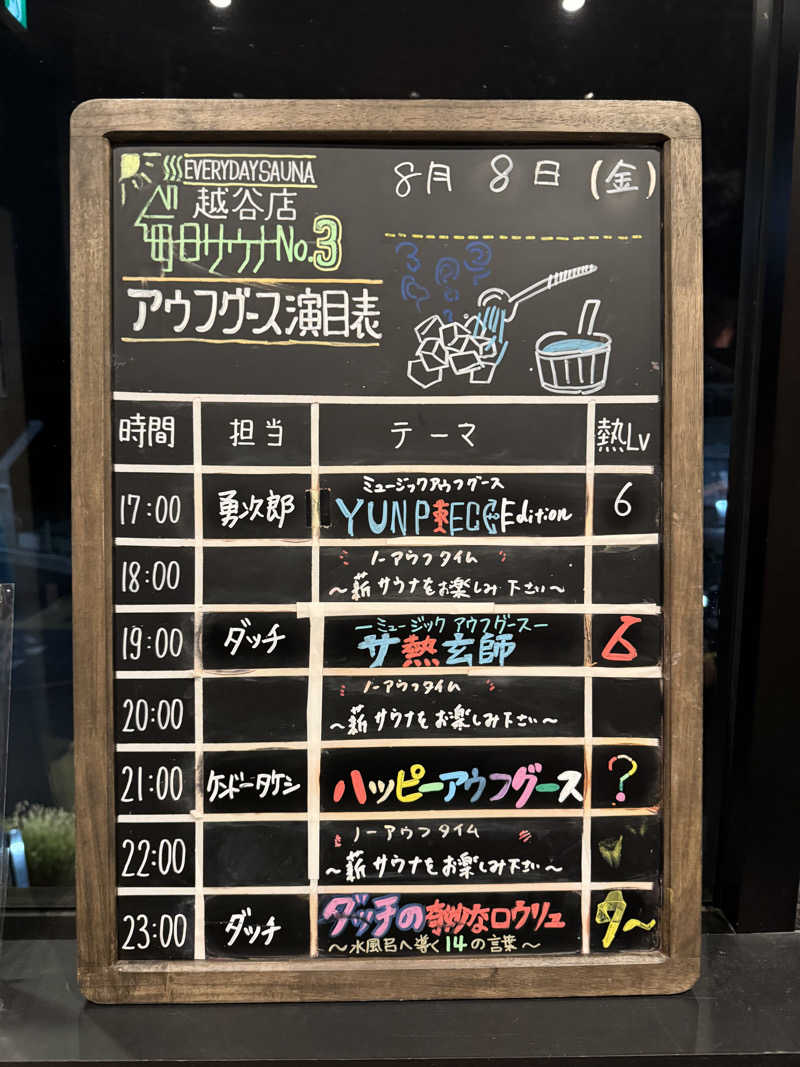 EVERYDAY SAUNA
越谷店
毎日サウナNo.3
8月 8日 (金)
アウフグース演目表
時間 担当 テーマ 熱Lv
ミュージックアウフグース
17:00 勇次郎 YUN PIECE Edition 6
ノーアウフタイム
18:00 〜薪サウナをお楽しみ下さい〜
ーミュージック アウフグースー
19:00 ダッチ サ熱玄師 6
ノーアウフタイム
20:00 〜薪サウナをお楽しみ下さい〜
21:00 ケンドータケシ ハッピーアウフグース ?
ノーアウフタイム
22:00 〜薪サウナをお楽しみ下さい〜
23:00 ダッチ ダッチの奇妙なロウリュ 9〜
〜水風呂へ導く14の言葉〜